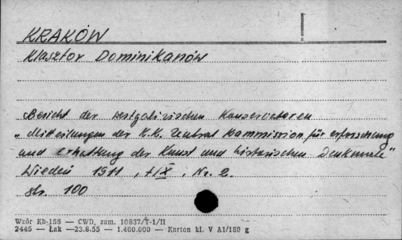 KRAKÓW
Klasztor Dominikanów
Bericht der westgalizischen Konservatoren
„Mitteilungen der K.K. Zentral Kommission für erforschung
und erhaltung der Kunst und historischen Denkmale"
Wiedeń 1911, t. IX, Nr. 2.
str. 100
Wzór Kb-158 — CWD, zam. 10837/T-1/II
2445 — Łak —23.8.55 — 1.400.000 — Karton kl. V A1/180 g